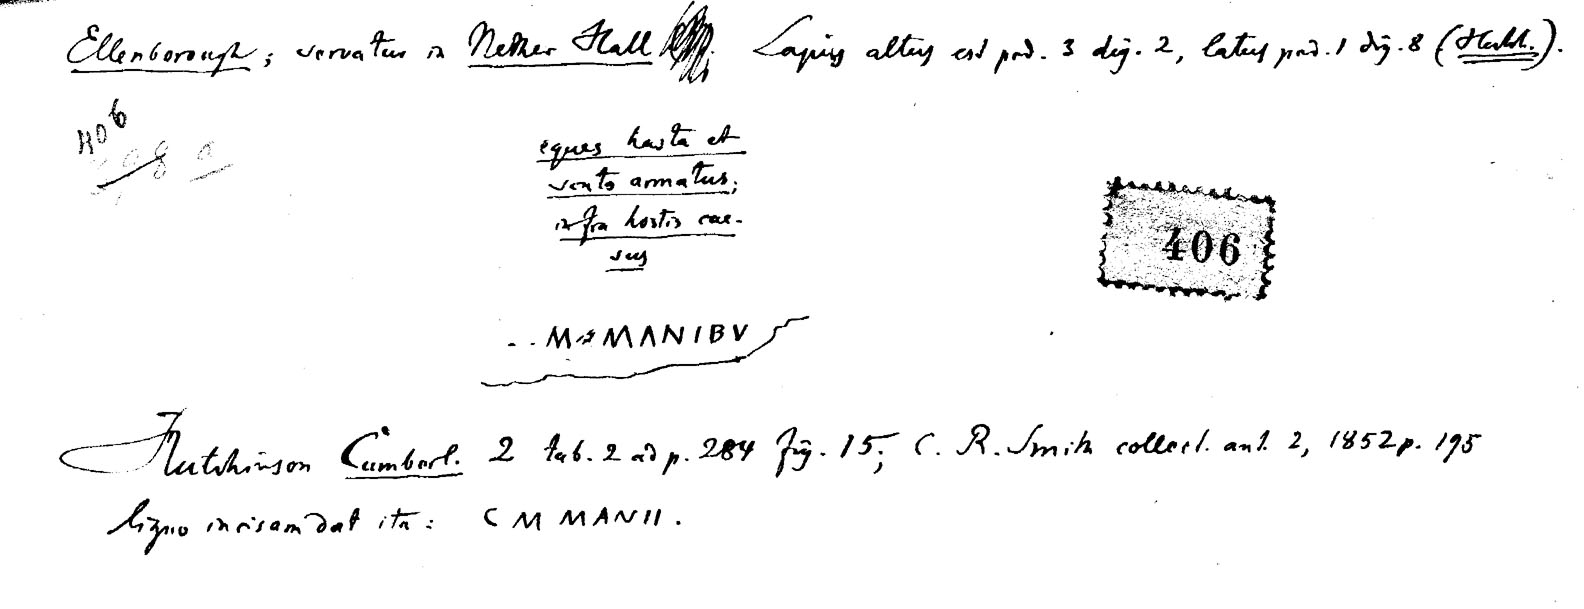 Ellenborough; servatur in Nether Hall Lapis altus est ped. 3 dig. 2, latus ped. 1 dig. 8 (Hutch.).
406
eques hasta et
scuto armatus;
infra hostis cae-
sus
406
.. M MANIBV
Hutchinson Cumberl. 2 tab. 2 ad p. 284 fig. 15; C. R. Smith collect. ant. 2, 1852 p. 195
ligno incisam dat ita: C M MANII.